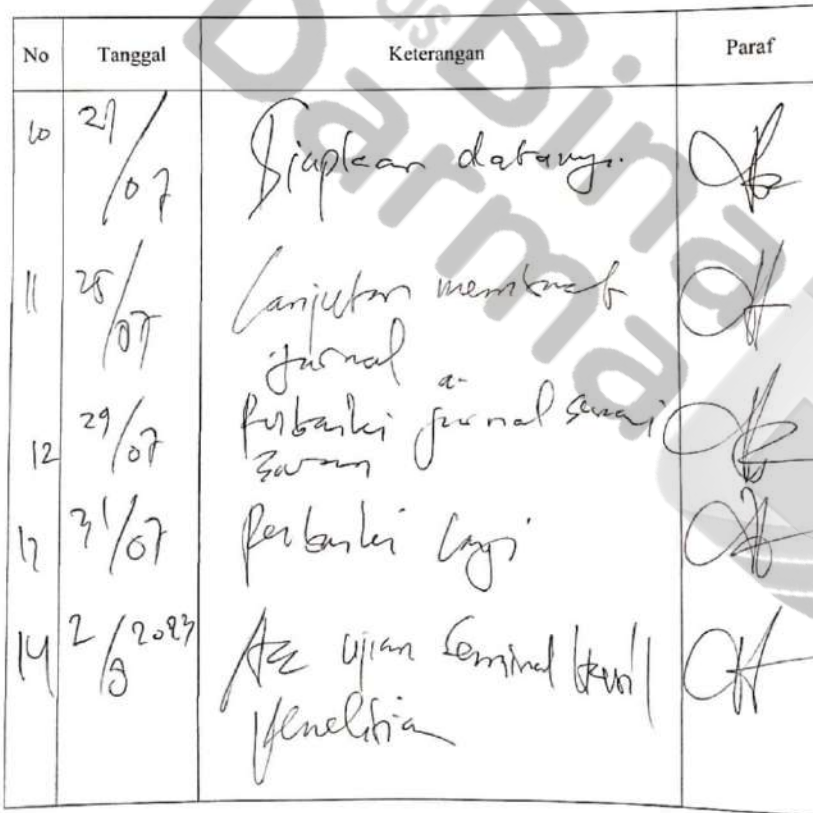 No Tanggal Keterangan Paraf
10 21/07 Siapkan datanya.
11 25/07 Lanjutkan membuat
jurnal
12 29/07 Perbaiki jurnal sesuai
saran
13 31/07 Perbaiki lagi
14 2/8 2023 Acc ujian Seminar Hasil
Penelitian
Bina
Darma